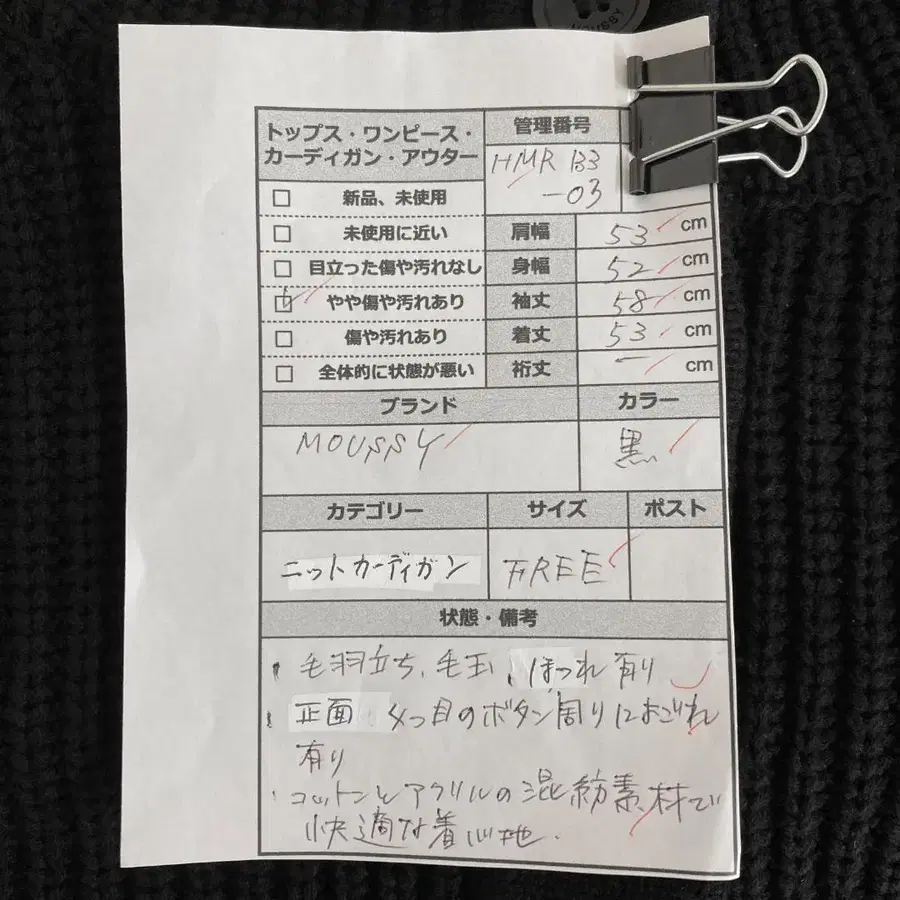 MOUSSY
トップス・ワンピース・
カーディガン・アウター
管理番号
HMR B3
-03
□ 新品、未使用
□ 未使用に近い
□ 目立った傷や汚れなし
☑ やや傷や汚れあり
□ 傷や汚れあり
□ 全体的に状態が悪い
肩幅 53 cm
身幅 52 cm
袖丈 58 cm
着丈 53 cm
裄丈 ー cm
ブランド カラー
MOUSSY 黒
カテゴリー サイズ ポスト
ニットカーディガン FREE
状態・備考
・毛羽立ち、毛玉、ほつれ有り
・正面 4つ目のボタン周りによごれ
有り
・コットンとアクリルの混紡素材で
快適な着心地.